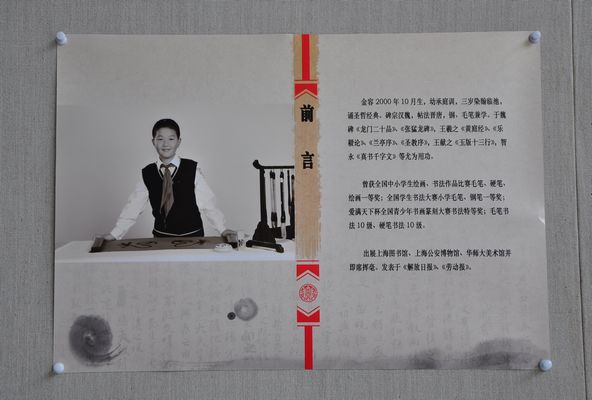 前言
金容 2000 年 10 月生，幼承庭训，三岁染翰临池，
诵圣哲经典、碑宗汉魏，帖法晋唐，钢、毛笔兼学。于魏
碑《龙门二十品》、《张猛龙碑》，王羲之《黄庭经》、《乐
毅论》、《兰亭序》、《圣教序》，王献之《玉版十三行》，智
永《真书千字文》等尤为用功。
曾获全国中小学生绘画、书法作品比赛毛笔、硬笔、
绘画一等奖；全国学生书法大赛小学毛笔、钢笔一等奖；
爱满天下杯全国青少年书画篆刻大赛书法特等奖；毛笔书
法 10 级、硬笔书法 10 级。
出展上海图书馆，上海公安博物馆、华师大美术馆并
即席挥毫。发表于《解放日报》、《劳动报》。